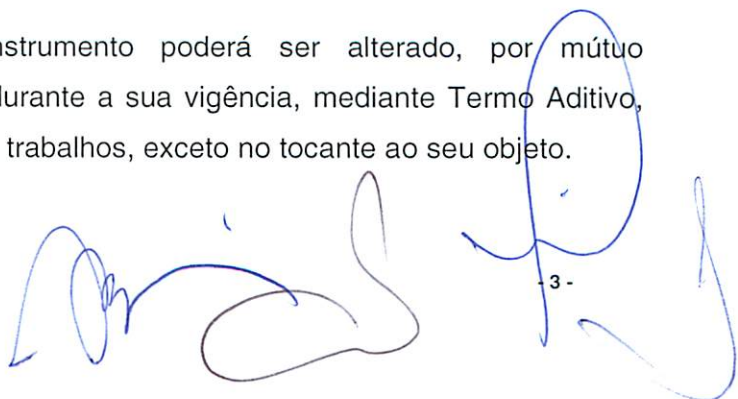 nstrumento poderá ser alterado, por mútuo
durante a sua vigência, mediante Termo Aditivo,
trabalhos, exceto no tocante ao seu objeto.
- 3 -